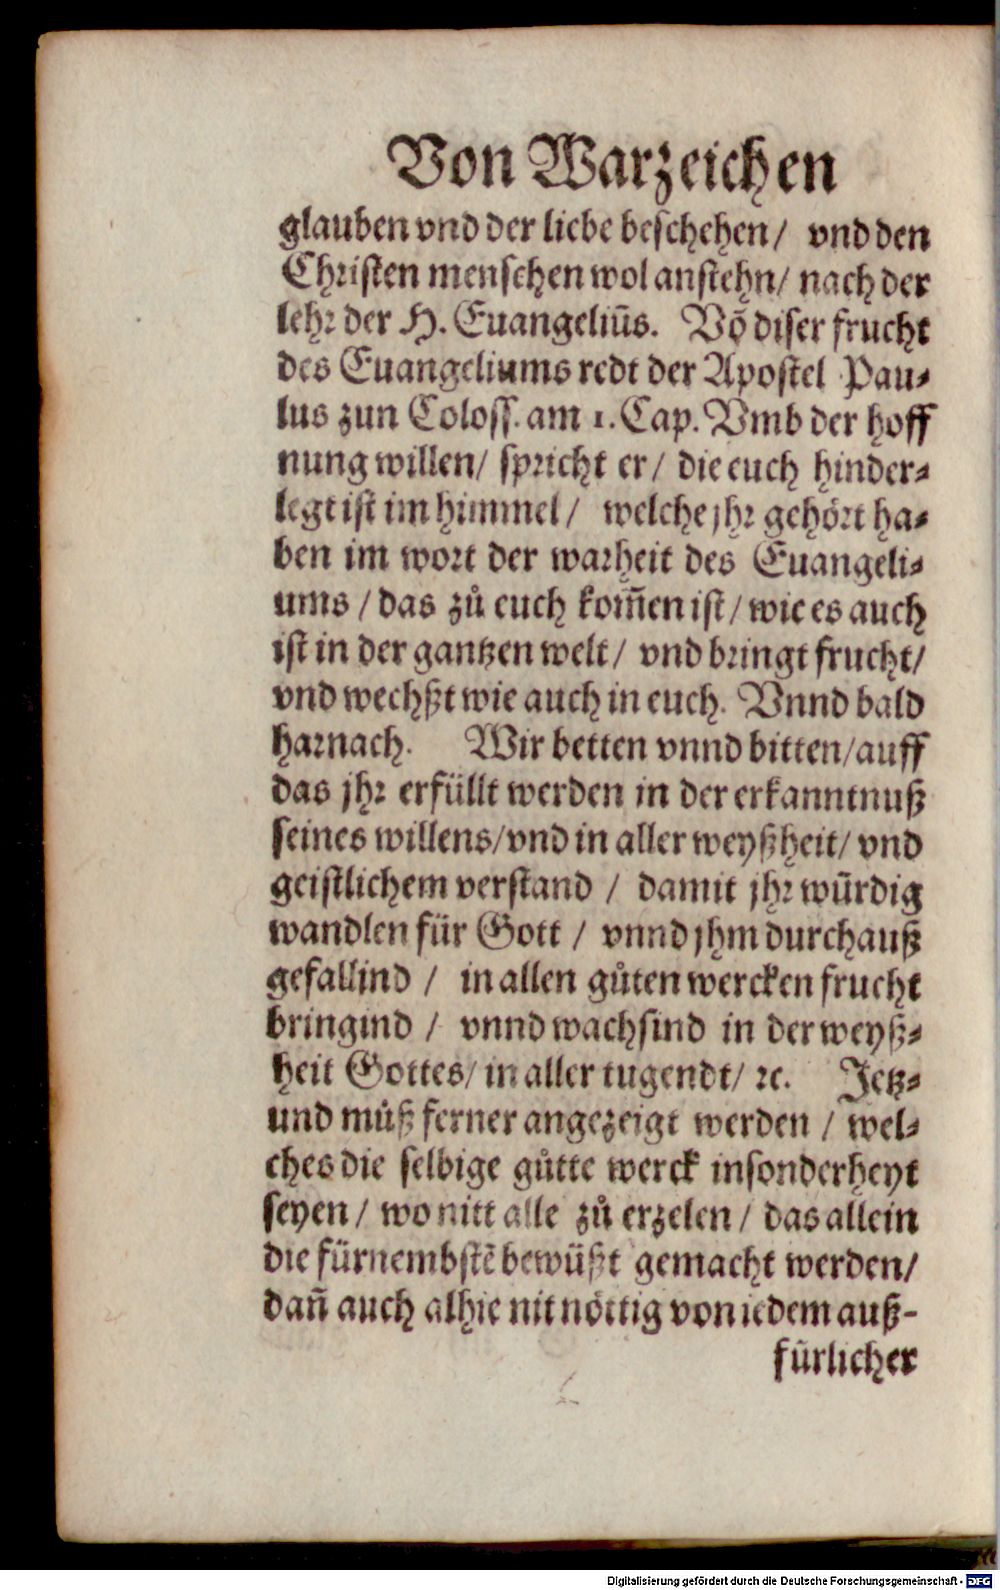 Von Warzeichen
glauben vnd der liebe beschehen/ vnd den
Christen menschen wol anstehn/ nach der
lehr der H. Euangeliūs. Võ diser frucht
des Euangeliums redt der Apostel Pau⸗
lus zun Coloss. am 1. Cap. Vmb der hoff
nung willen/ spricht er/ die euch hinder⸗
legt ist im himmel/ welche jhr gehört ha⸗
ben im wort der warheit des Euangeli⸗
ums / das zů euch kom̄en ist/ wie es auch
ist in der gantzen welt/ vnd bringt frucht/
vnd wechßt wie auch in euch. Vnnd bald
harnach. Wir betten vnnd bitten/auff
das jhr erfüllt werden in der erkanntnuß
seines willens/vnd in aller weyßheit/ vnd
geistlichem verstand / damit jhr würdig
wandlen für Gott / vnnd jhm durchauß
gefallind / in allen gůten wercken frucht
bringind / vnnd wachsind in der weyß⸗
heit Gottes/ in aller tugendt/ ꝛc. Jetz⸗
und můß ferner angezeigt werden / wel⸗
ches die selbige gůtte werck insonderheyt
seyen / wo nitt alle zů erzelen / das allein
die fürnembstē bewüßt gemacht werden/
dan̄ auch alhie nit nöttig von iedem auß-
fürlicher
Digitalisierung gefördert durch die Deutsche Forschungsgemeinschaft - DFG